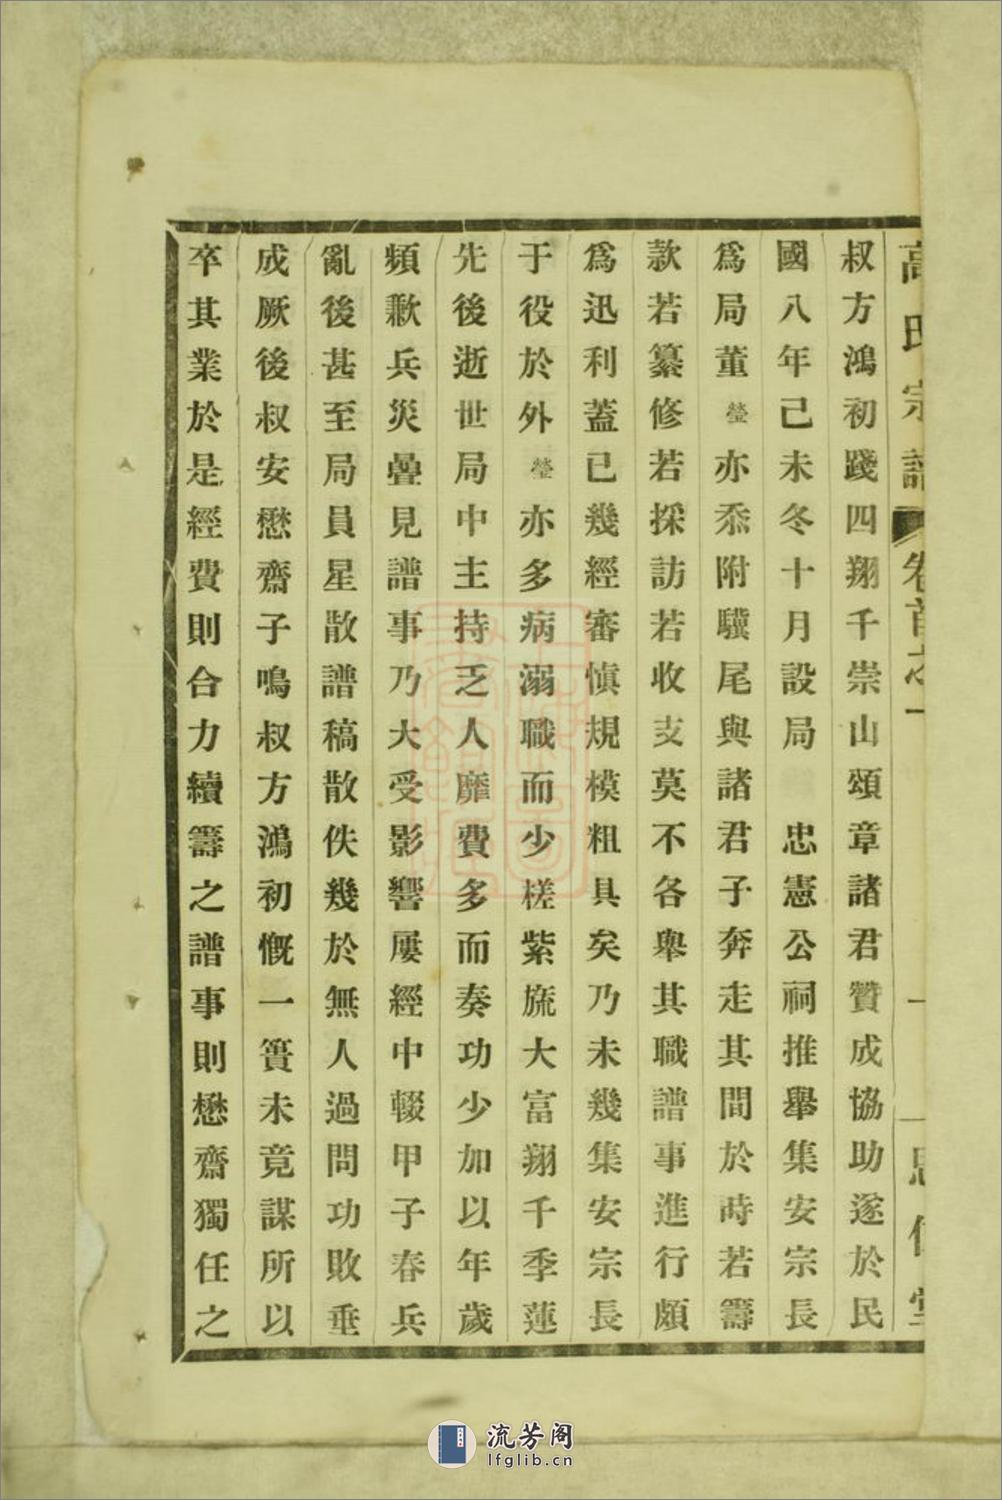 高氏宗譜 卷首之一 一 思
叔方鴻初踐四翔千崇山頌章諸君贊成協助遂於民
國八年己未冬十月設局 忠憲公祠推舉集安宗長
爲局董瑩亦忝附驥尾與諸君子奔走其間於時若籌
款若纂修若採訪若收支莫不各舉其職譜事進行頗
爲迅利蓋已幾經審愼規模粗具矣乃未幾集安宗長
于役於外瑩亦多病溺職而少槎紫旒大富翔千季蓮
先後逝世局中主持乏人靡費多而奏功少加以年歲
頻歉兵災疊見譜事乃大受影響屢經中輟甲子春兵
亂後甚至局員星散譜稿散佚幾於無人過問功敗垂
成厥後叔安懋齋子鳴叔方鴻初慨一簣未竟謀所以
卒其業於是經費則合力續籌之譜事則懋齋獨任之
流芳阁
lfglib.cn